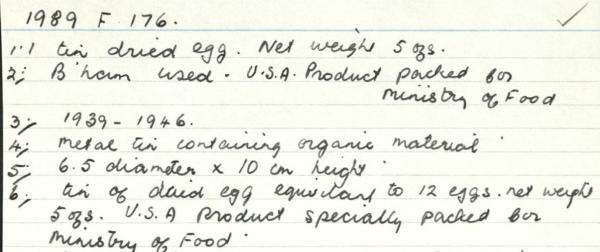 1989 F 176.
1. 1 tin dried egg. Net weight 5 ozs.
2; B'ham used. U.S.A. Product packed for
Ministry of Food
3; 1939 - 1946.
4; metal tin containing organic material
5; 6.5 diameter x 10 cm height
6; tin of dried egg equivilant to 12 eggs. net weight
5 ozs. U.S.A Product specially packed for
Ministry of Food.